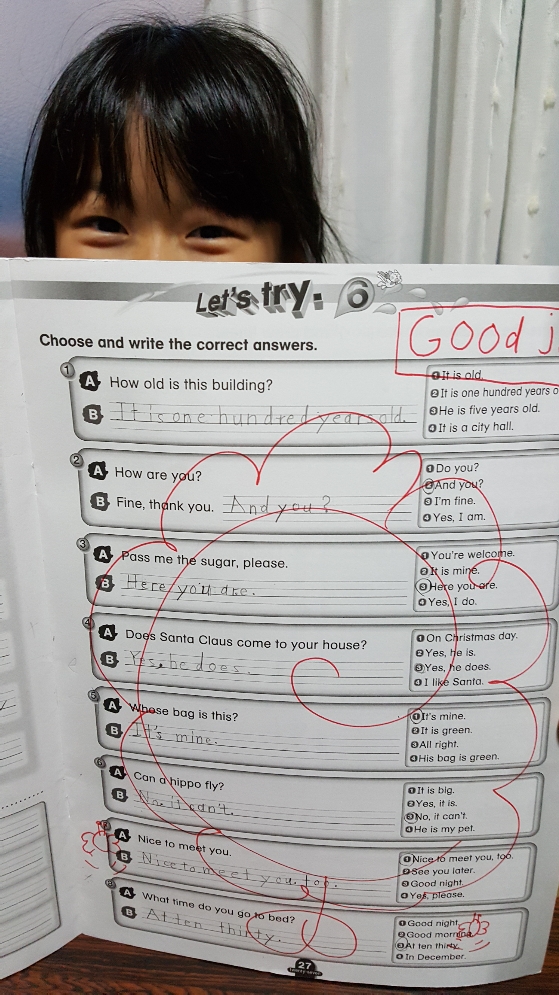 Let's try: 6
Choose and write the correct answers.
GOOD j
1
A How old is this building?
B It is one hundred years old.
❶It is old.
❷It is one hundred years o
❸He is five years old.
❹It is a city hall.
2
A How are you?
B Fine, thank you. And you?
❶Do you?
❷And you?
❸I'm fine.
❹Yes, I am.
3
A Pass me the sugar, please.
B Here you are.
❶You're welcome.
❷It is mine.
❸Here you are.
❹Yes, I do.
4
A Does Santa Claus come to your house?
B Yes, he does.
❶On Christmas day.
❷Yes, he is.
❸Yes, he does.
❹I like Santa.
5
A Whose bag is this?
B It's mine.
❶It's mine.
❷It is green.
❸All right.
❹His bag is green.
6
A Can a hippo fly?
B No, it can't.
❶It is big.
❷Yes, it is.
❸No, it can't.
❹He is my pet.
7
A Nice to meet you.
B Nice to meet you, too.
❶Nice to meet you, too.
❷See you later.
❸Good night.
❹Yes, please.
8
A What time do you go to bed?
B At ten thirty.
❶Good night.
❷Good morning.
❸At ten thirty.
❹In December.
27
twenty-seven